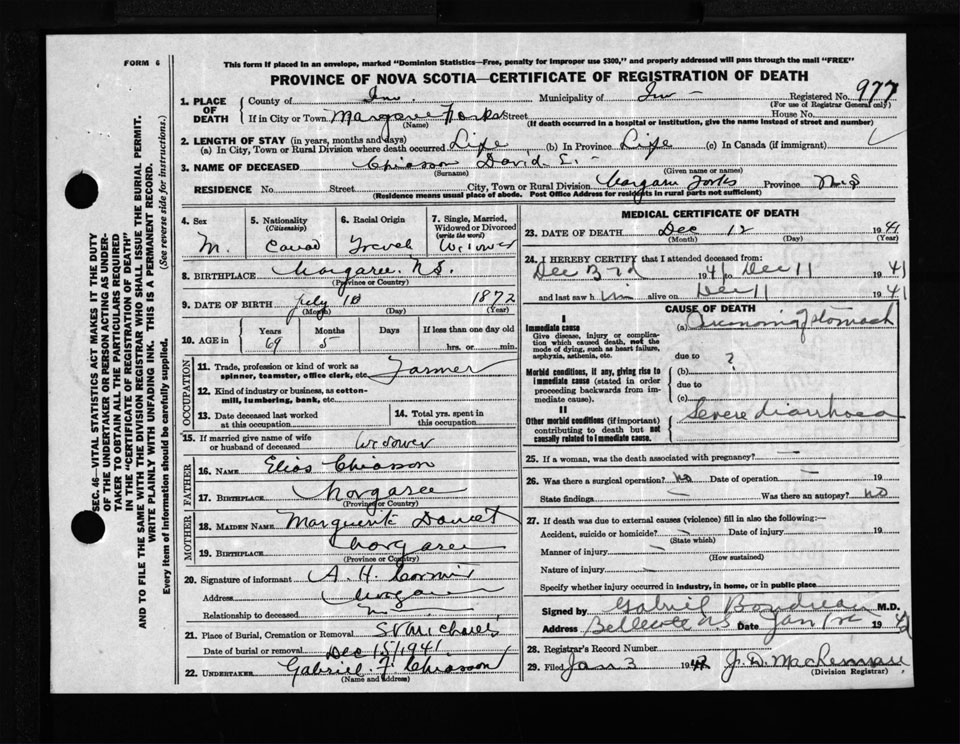 FORM 6
This form if placed in an envelope, marked "Dominion Statistics—Free, penalty for improper use $300," and properly addressed will pass through the mail "FREE"
PROVINCE OF NOVA SCOTIA—CERTIFICATE OF REGISTRATION OF DEATH
SEC. 46—VITAL STATISTICS ACT MAKES IT THE DUTY
OF THE UNDERTAKER OR PERSON ACTING AS UNDER-
TAKER TO OBTAIN ALL THE PARTICULARS REQUIRED
IN THE "CERTIFICATE OF REGISTRATION OF DEATH"
AND TO FILE THE SAME WITH THE DIVISION REGISTRAR WHO SHALL ISSUE THE BURIAL PERMIT.
WRITE PLAINLY WITH UNFADING INK. THIS IS A PERMANENT RECORD.
Every item of Information should be carefully supplied. (See reverse side for instructions.)
1. PLACE OF DEATH
County of Inv. Municipality of Inv - Registered No. 977
(For use of Registrar General only)
If in City or Town Margaree Forks Street House No.
(Name) (If death occurred in a hospital or institution, give the name instead of street and number)
2. LENGTH OF STAY (in years, months and days)
(a) In City, Town or Rural Division where death occurred Life (b) In Province Life (c) In Canada (if immigrant)
3. NAME OF DECEASED Chiasson David S. -
(Surname) (Given name or names)
RESIDENCE No. Street City, Town or Rural Division Margaree Forks Province N.S
(Residence means usual place of abode. Post Office Address for residents in rural parts not sufficient)
4. Sex M.
5. Nationality (Citizenship) Canad
6. Racial Origin French
7. Single, Married, Widowed or Divorced (write the word) Widower
8. BIRTHPLACE Margaree. N.S.
(Province or Country)
9. DATE OF BIRTH July 10 1872
(Month) (Day) (Year)
10. AGE in Years 69 Months 5 Days If less than one day old hrs. or min.
OCCUPATION
11. Trade, profession or kind of work as spinner, teamster, office clerk, etc. Farmer
12. Kind of industry or business, as cotton-mill, lumbering, bank, etc.
13. Date deceased last worked at this occupation
14. Total yrs. spent in this occupation
15. If married give name of wife or husband of deceased widower
FATHER
16. NAME Elias Chiasson
17. BIRTHPLACE Margaree
(Province or Country)
MOTHER
18. MAIDEN NAME Marguerite Doucet
19. BIRTHPLACE Margaree
(Province or Country)
20. Signature of informant A. H. Cormier
Address Margaree
Relationship to deceased
21. Place of Burial, Cremation or Removal St Michael's
Date of burial or removal Dec 15/1941
22. UNDERTAKER Gabriel F. Chiasson
(Name and Address)
MEDICAL CERTIFICATE OF DEATH
23. DATE OF DEATH Dec 12 1941
(Month) (Day) (Year)
24. I HEREBY CERTIFY that I attended deceased from:
Dec 3rd 1941 to Dec 11 1941
and last saw him alive on Dec 11 1941
CAUSE OF DEATH
I
Immediate cause (a) Carcinoma of stomach
Give disease, injury or complication which caused death, not the mode of dying, such as heart failure, asphyxia, asthenia, etc.
due to ?
Morbid conditions, if any, giving rise to immediate cause (stated in order proceeding backwards from immediate cause).
(b)
due to
(c)
II
Other morbid conditions (if important) contributing to death but not causally related to immediate cause. Severe diarrhoea
25. If a woman, was the death associated with pregnancy? —
26. Was there a surgical operation? no Date of operation — 19
State findings — Was there an autopsy? no
27. If death was due to external causes (violence) fill in also the following:—
Accident, suicide or homicide? — Date of injury 19
(State which)
Manner of injury —
(How sustained)
Nature of injury —
Specify whether injury occurred in industry, in home, or in public place
Signed by Gabriel Boudreau M.D.
Address Bellecote NS Date Jan 1942
28. Registrar's Record Number
29. Filed Jan 3 1942 J. D. MacLennan
(Division Registrar)